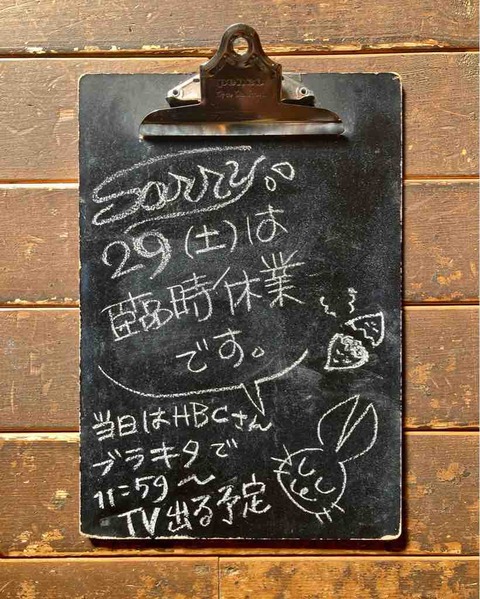 Sorry。。
29(土)は
臨時休業
です。
当日はHBCさん
ブラキタで
11:59〜
TV出る予定